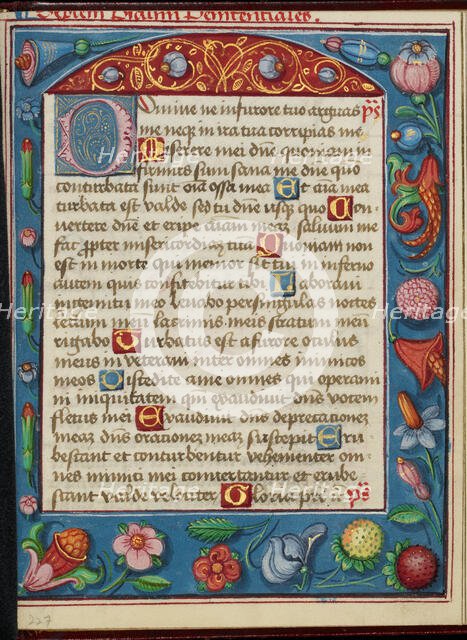 Septem Psalmi Penitentiales.
Domine ne in furore tuo arguas ps
me neq in ira tua corripias me
Miserere mei dne quoniam in
firmus sum sana me dne quo
conturbata sunt oia ossa mea Et aia mea
turbata est valde sed tu dne usq quo Con
vertere dne et eripe aiam meaz saluum me
fac propter misericordiaz tua Quoniam non
est in morte qui memor sit tui in inferno
autem quis confitebitur tibi Laboraui
in gemitu meo lauabo per singulas noctes
lectum meu lacrimis meis stratum meu
rigabo Turbatus est a furore oculus
meus inveteraui inter omnes inimicos
meos Discedite a me omnes qui operami
ni iniquitatem qm exaudiuit dns vocem
fletus mei Exaudiuit dns deprecationez
meaz dns orationez meaz suscepit Eru
bescant et conturbentur vehementer om
nes inimici mei convertantur et erube
scant valde velociter Gloria patri ps
227
Heritage
Heritage
Heritage
Heritage
Heritage
Heritage
Heritage
Heritage